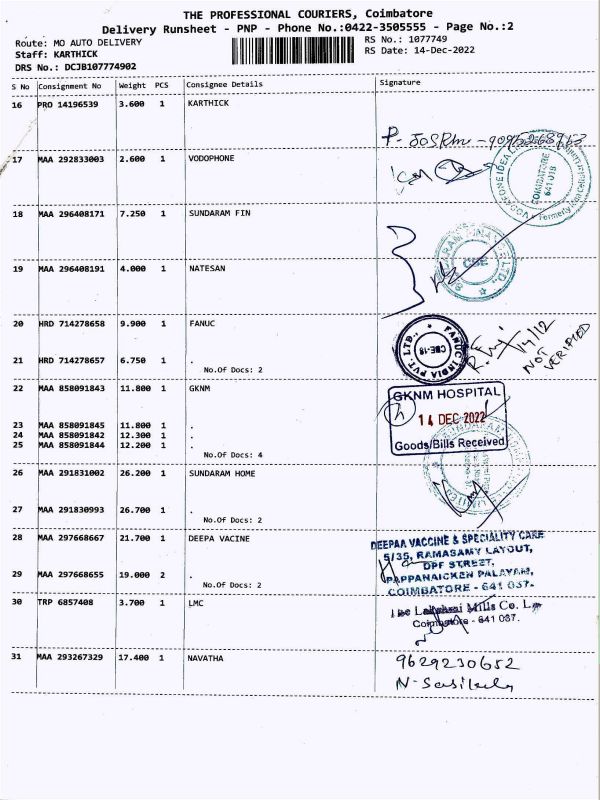 THE PROFESSIONAL COURIERS, Coimbatore
Delivery Runsheet - PNP - Phone No.:0422-3505555 - Page No.:2
Route: MO AUTO DELIVERY RS No.: 1077749
Staff: KARTHICK RS Date: 14-Dec-2022
DRS No.: DCJB107774902
S No Consignment No Weight PCS Consignee Details Signature
16 PRO 14196539 3.600 1 KARTHICK
17 MAA 292833003 2.600 1 VODOPHONE
COIMBATORE
641 018
18 MAA 296408171 7.250 1 SUNDARAM FIN
CBE
19 MAA 296408191 4.000 1 NATESAN
20 HRD 714278658 9.900 1 FANUC
FANUC INDIA PVT. LTD.,
CBE-18
14/12
NOT
VERIFIED
21 HRD 714278657 6.750 1 .
No.Of Docs: 2
22 MAA 858091843 11.800 1 GKNM
GKNM HOSPITAL
14 DEC 2022
Goods/Bills Received
23 MAA 858091845 11.800 1 .
24 MAA 858091842 12.300 1 .
25 MAA 858091844 12.200 1 .
No.Of Docs: 4
26 MAA 291831002 26.200 1 SUNDARAM HOME
27 MAA 291830993 26.700 1 .
No.Of Docs: 2
28 MAA 297668667 21.700 1 DEEPA VACINE
DEEPAA VACCINE & SPECIALITY CARE
5/35, RAMASAMY LAYOUT,
DPF STREET,
PAPPANAICKEN PALAYAM,
COIMBATORE - 641 037.
29 MAA 297668655 19.000 2 .
No.Of Docs: 2
30 TRP 6857408 3.700 1 LMC
Mills Co. L
Coimbatore - 641 037.
31 MAA 293267329 17.400 1 NAVATHA
9629230652